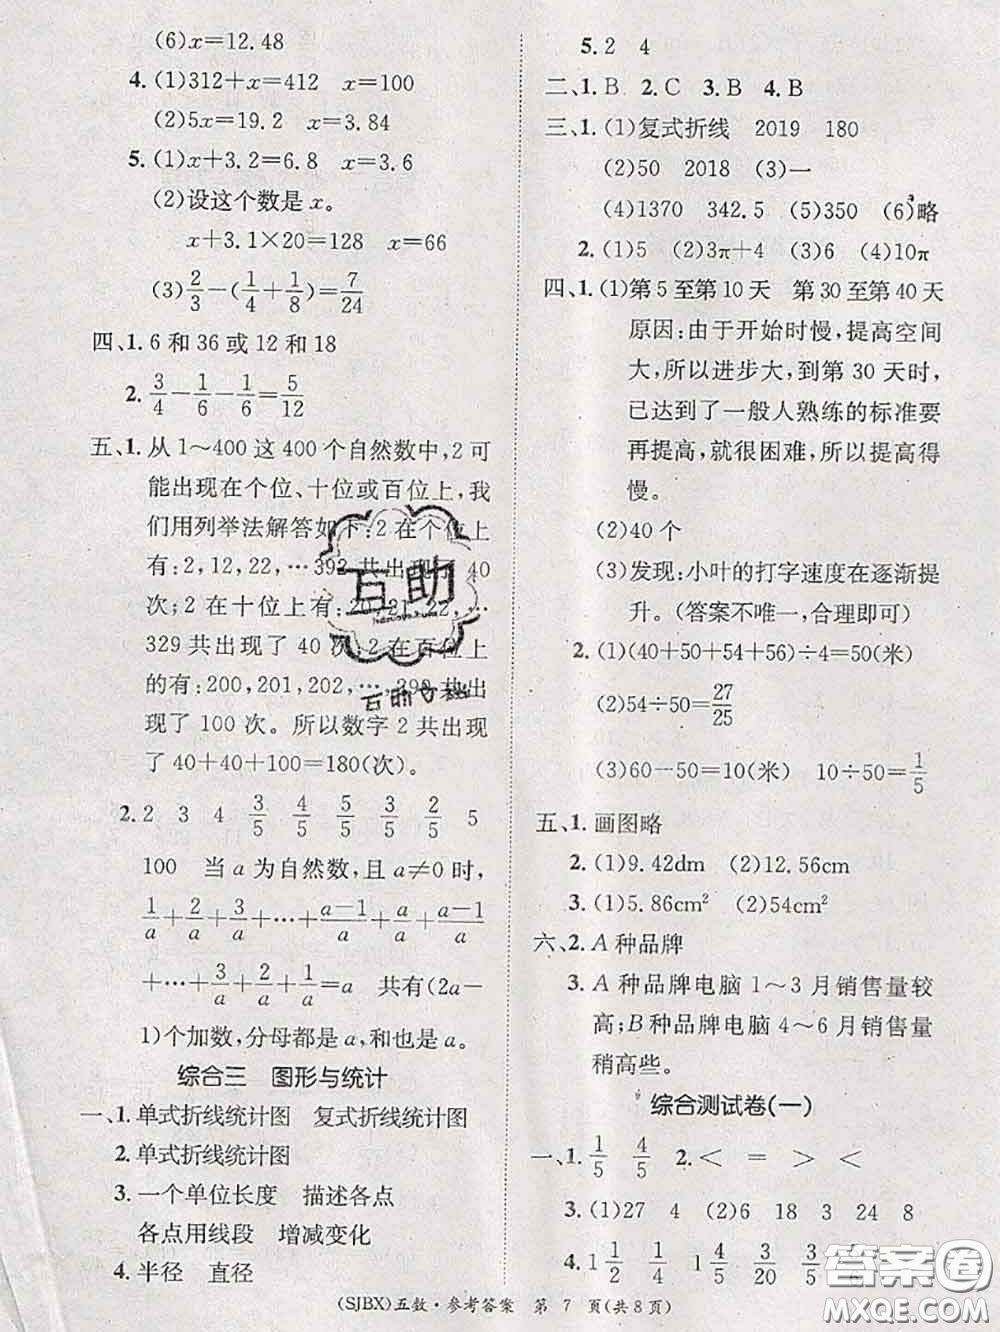 (6)x=12.48
4.(1)312+x=412　x=100
(2)5x=19.2　x=3.84
5.(1)x+3.2=6.8　x=3.6
(2)设这个数是 x。
x+3.1×20=128　x=66
(3)2/3-(1/4+1/8)=7/24
四、1.6 和 36 或 12 和 18
2. 3/4-1/6-1/6=5/12
五、1.从 1～400 这 400 个自然数中,2 可
能出现在个位、十位或百位上,我
们用列举法解答如下:2 在个位上
有:2,12,22,…392 共出现了 40
次;2 在十位上有:20,21,22,…
329 共出现了 40 次;2 在百位上
的有:200,201,202,…,299 共出
现了 100 次。所以数字 2 共出现
了 40+40+100=180(次)。
2.2　3　4　3/5　4/5　5/5　3/5　2/5　5
100　当 a 为自然数,且 a≠0 时,
1/a+2/a+3/a+…+(a-1)/a+a/a+(a-1)/a
+…+3/a+2/a+1/a=a　共有(2a-
1)个加数,分母都是 a,和也是 a。
综合三　图形与统计
一、1.单式折线统计图　复式折线统计图
2.单式折线统计图
3.一个单位长度　描述各点
各点用线段　增减变化
4.半径　直径
5.2　4
二、1.B　2.C　3.B　4.B
三、1.(1)复式折线　2019　180
(2)50　2018　(3)一
(4)1370　342.5　(5)350　(6)略
2.(1)5　(2)3π+4　(3)6　(4)10π
四、1.(1)第 5 至第 10 天　第 30 至第 40 天
原因:由于开始时慢,提高空间
大,所以进步大,到第 30 天时,
已达到了一般人熟练的标准要
再提高,就很困难,所以提高得
慢。
(2)40 个
(3)发现:小叶的打字速度在逐渐提
升。(答案不唯一,合理即可)
2.(1)(40+50+54+56)÷4=50(米)
(2)54÷50=27/25
(3)60-50=10(米)　10÷50=1/5
五、1.画图略
2.(1)9.42dm　(2)12.56cm
3.(1)5.86cm²　(2)54cm²
六、2.A 种品牌
3.A 种品牌电脑 1～3 月销售量较
高;B 种品牌电脑 4～6 月销售量
稍高些。
综合测试卷(一)
一、1. 1/5　4/5　2.<　=　>　<
3.(1)27　4　(2)6　18　3　24　8
4. 1 1/2　2/4　1 4/5　3/20　3/5
(SJBX)五数·参考答案　第 7 页(共 8 页)
互助
答案圈
MXQE.COM